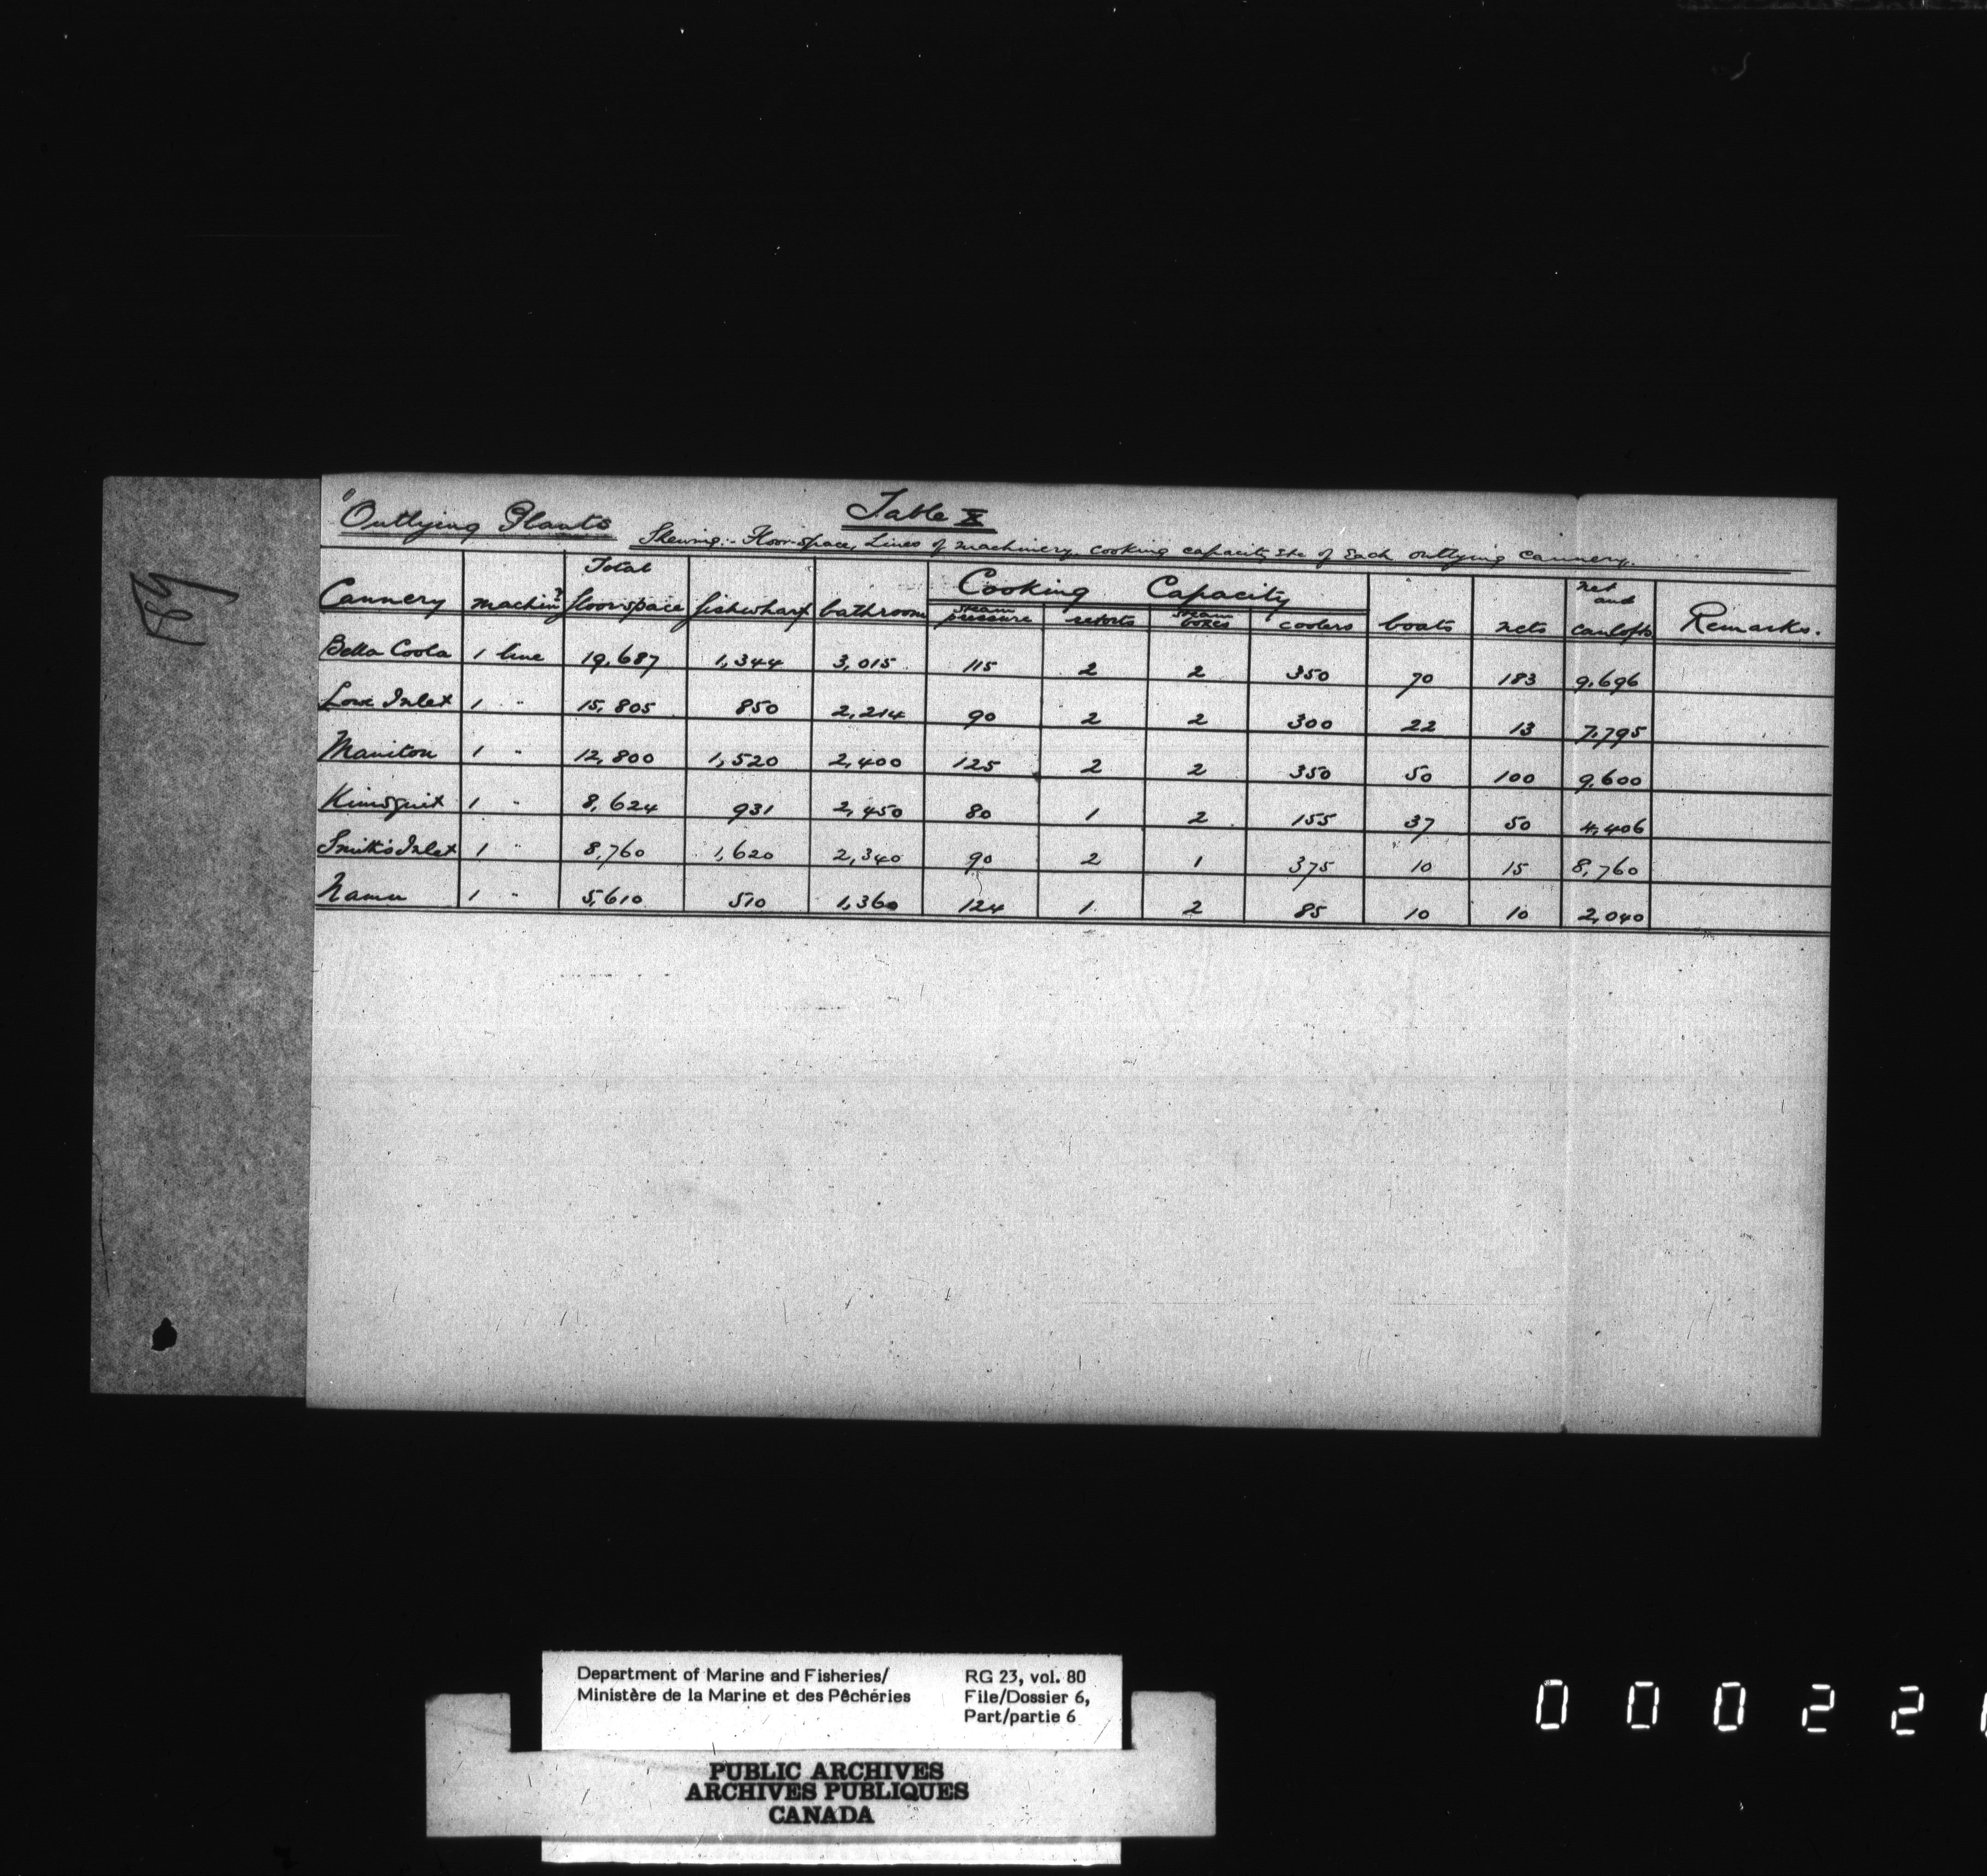 Table X
"Outlying Plants
Shewing:- Floor-space, Lines of machinery, cooking capacity etc of Each outlying Cannery.
Cannery machiny Total floorspace fishwharf bathroom Cooking Capacity steam pressure retorts steam boxes coolers boats nets net and canlofts Remarks.
Bella Coola 1 line 19,687 1,344 3,015 115 2 2 350 70 183 9,696
Lowe Inlet 1 " 15,805 850 2,214 90 2 2 300 22 13 7,795
Manitou 1 " 12,800 1,520 2,400 125 2 2 350 50 100 9,600
Kimsquit 1 " 8,624 931 2,450 80 1 2 155 37 50 4,406
Smith's Inlet 1 " 8,760 1,620 2,340 90 2 1 375 10 15 8,760
Namu 1 " 5,610 510 1,360 124 1 2 85 10 10 2,040
Department of Marine and Fisheries/
Ministère de la Marine et des Pêcheries
RG 23, vol. 80
File/Dossier 6,
Part/partie 6
PUBLIC ARCHIVES
ARCHIVES PUBLIQUES
CANADA
0 0 0 2 2